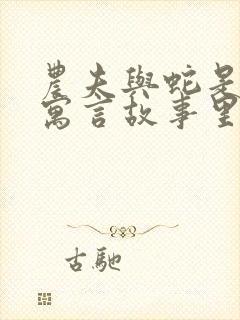 農夫與蛇是
寓言故事里
古馳